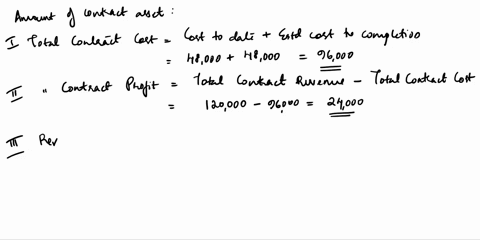 Amount of contract asset :
I Total Contract Cost = Cost to date + Estd cost to completion
= 48,000 + 48,000 = 96,000
II " Contract Profit = Total Contract Revenue - Total Contract Cost
= 120,000 - 96,000 = 24,000
III Rev